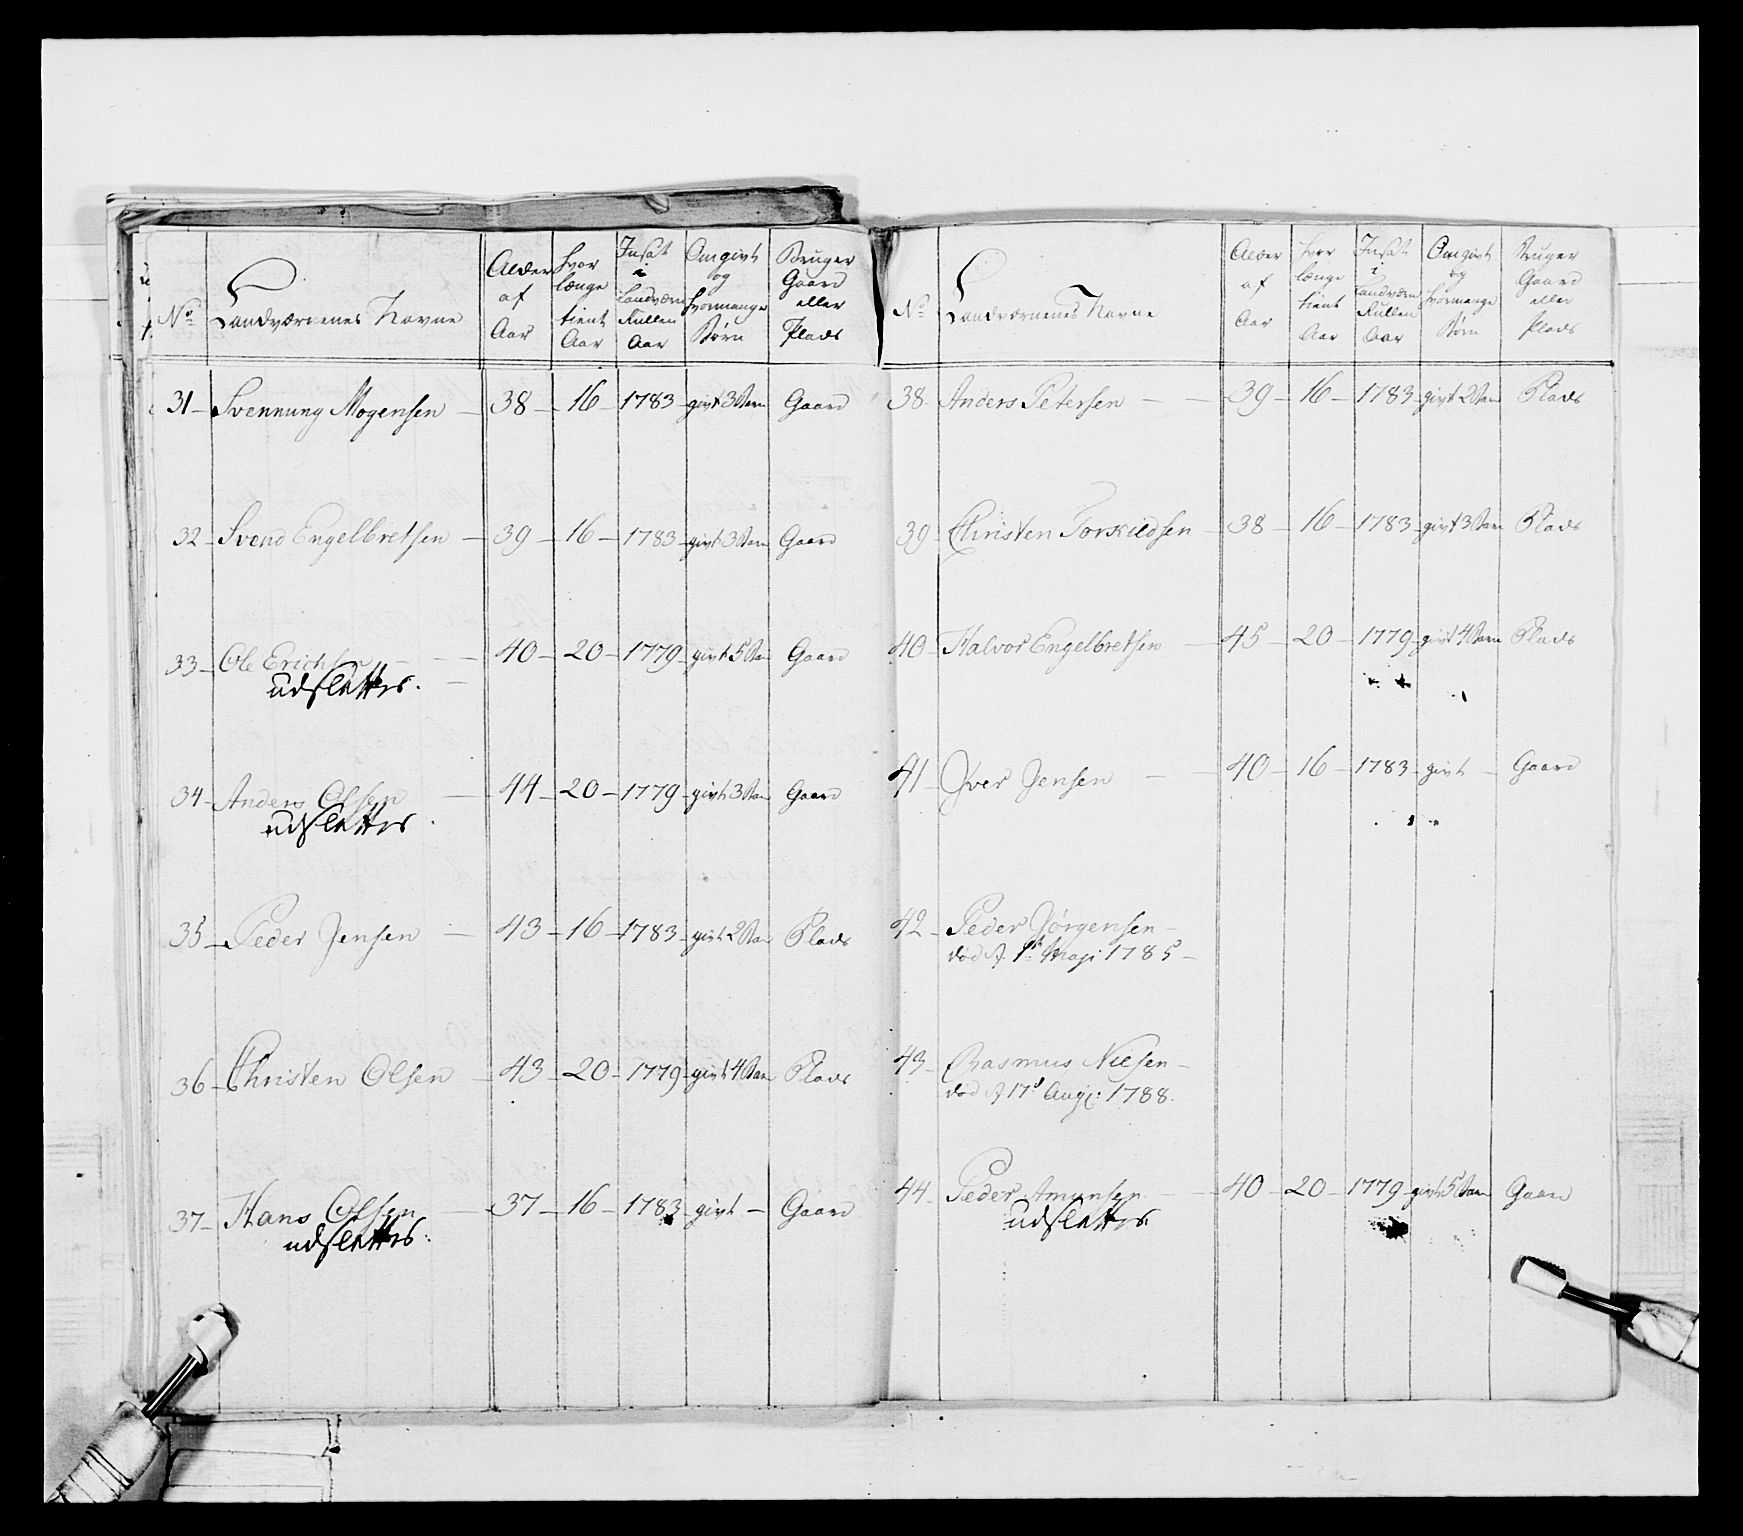 No
Landværnenes Navne
Alder af Aar
hvor længe tient Aar
Indsat i Landværn Rullen Aar
Om givt og hvormange Børn
Bruger Gaard eller Plads
31 - Svennung Mogensen - 38 - 16 - 1783 - givt 3 Barn Gaard
32 - Svend Engelbretsen - 39 - 16 - 1783 - givt 3 Barn Gaard
33 - Ole Erichsen - 40 - 20 - 1779 - givt 5 Barn Gaard
udslettes.
34 - Anders Olsen - 44 - 20 - 1779 - givt 3 Barn Gaard
udslettes.
35 - Peder Jensen - 43 - 16 - 1783 - givt 2 Barn Plads
36 - Christen Olsen - 43 - 20 - 1779 - givt 4 Barn Plads
37 - Hans Olsen - 37 - 16 - 1783 - givt - Gaard
udslettes.
No
Landværnenes Navne
Alder af Aar
hvor længe tient Aar
Indsat i Landværn Rullen Aar
Om givt og hvormange Børn
Bruger Gaard eller Plads
38 - Anders Petersen - 39 - 16 - 1783 - givt 2 Barn Plads
39 - Christen Torkildsen - 38 - 16 - 1783 - givt 3 Barn Plads
40 - Halvor Engelbretsen - 45 - 20 - 1779 - givt 4 Barn Plads
41 - Iver Jensen - 40 - 16 - 1783 - givt - Gaard
42 - Peder Jørgensen -
død d. 1st Maji 1785 -
43 - Rasmus Nielsen -
død d. 17d Aug: 1788.
44 - Peder Amunsen - 40 - 20 - 1779 - givt 5 Barn Gaard
udslettes.